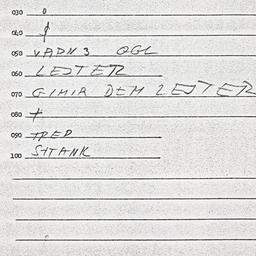 030
040
050 VADN 3 OGL
060 LESTER
070 GIMIR DEM LESTER
080 +
090 TRED
100 SHTANK